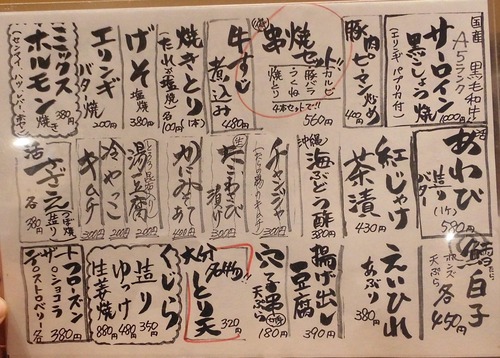 国産 A5ランク 黒毛和牛
サーロイン
黒こしょう焼
(エリンギ パプリカ付)
1000円
豚肉ピーマン炒め
400円
串焼セット!!
カルビ
豚バラ
つくね
鶏もも
4本セットで!!
560円
牛すじ煮込み
480円
焼きとり
(たれ or 塩焼)
各100円(1本)
げそ塩焼
380円
エリンギバター焼
200円
ミックスホルモン
380円
あわび
造り バター
(1ヶ)
580円
紅じゃけ茶漬
430円
沖縄 海ぶどう酢
380円
チャンジャ
300円
生 たこわさび漬け
300円
かにみそあえ
400円
湯豆腐
200円
冷ややっこ
200円
キムチ
300円
活さざえ
造り つぼ焼
各380円
鱈白子
ポンズ 天ぷら
各450円
えいひれあぶり
380円
揚げ出し豆腐
390円
穴子串天ぷら
180円
大分名物!! とり天
320円
くじら
造り 350円
ゆっけ 480円
生姜焼 880円
デザート
フローズン
ショコラ
ストロベリー
各380円